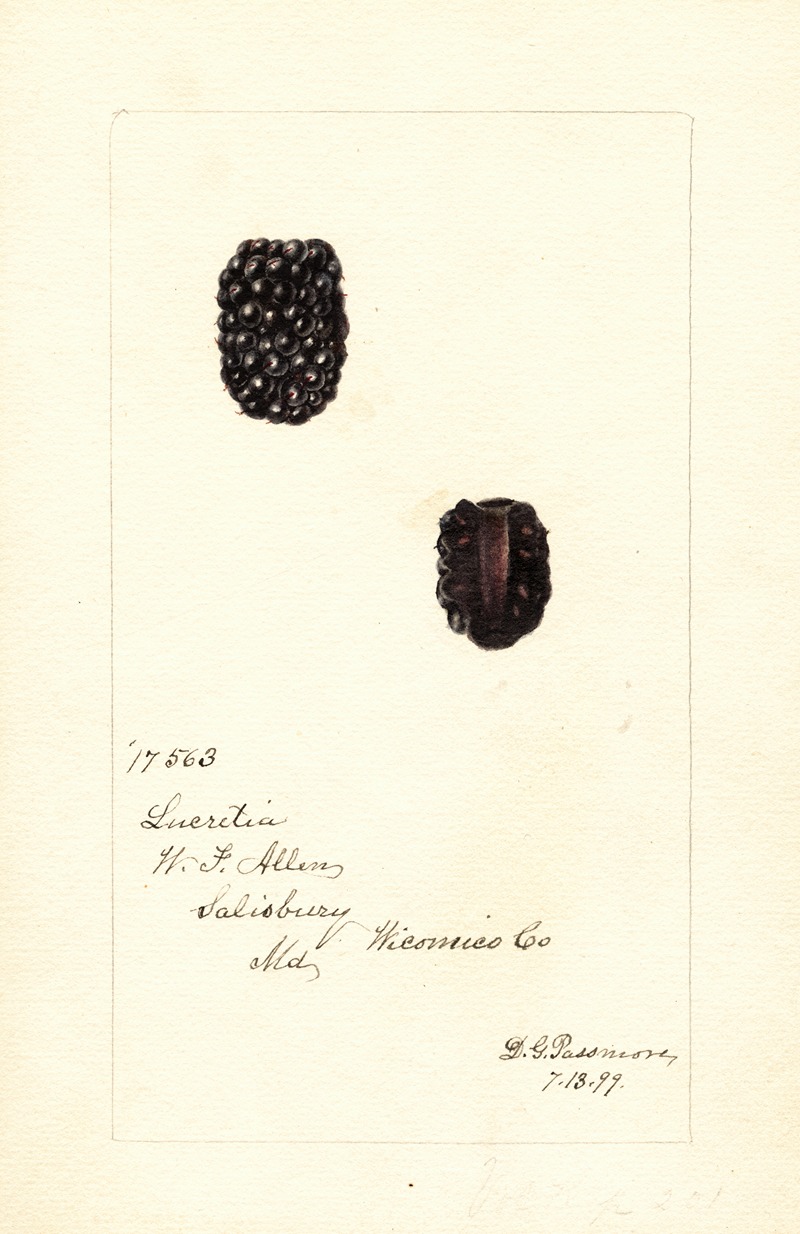 17563
Lucretia
W. F. Allen
Salisbury
Wicomico Co
Md
D. G. Passmore
7.13.99.